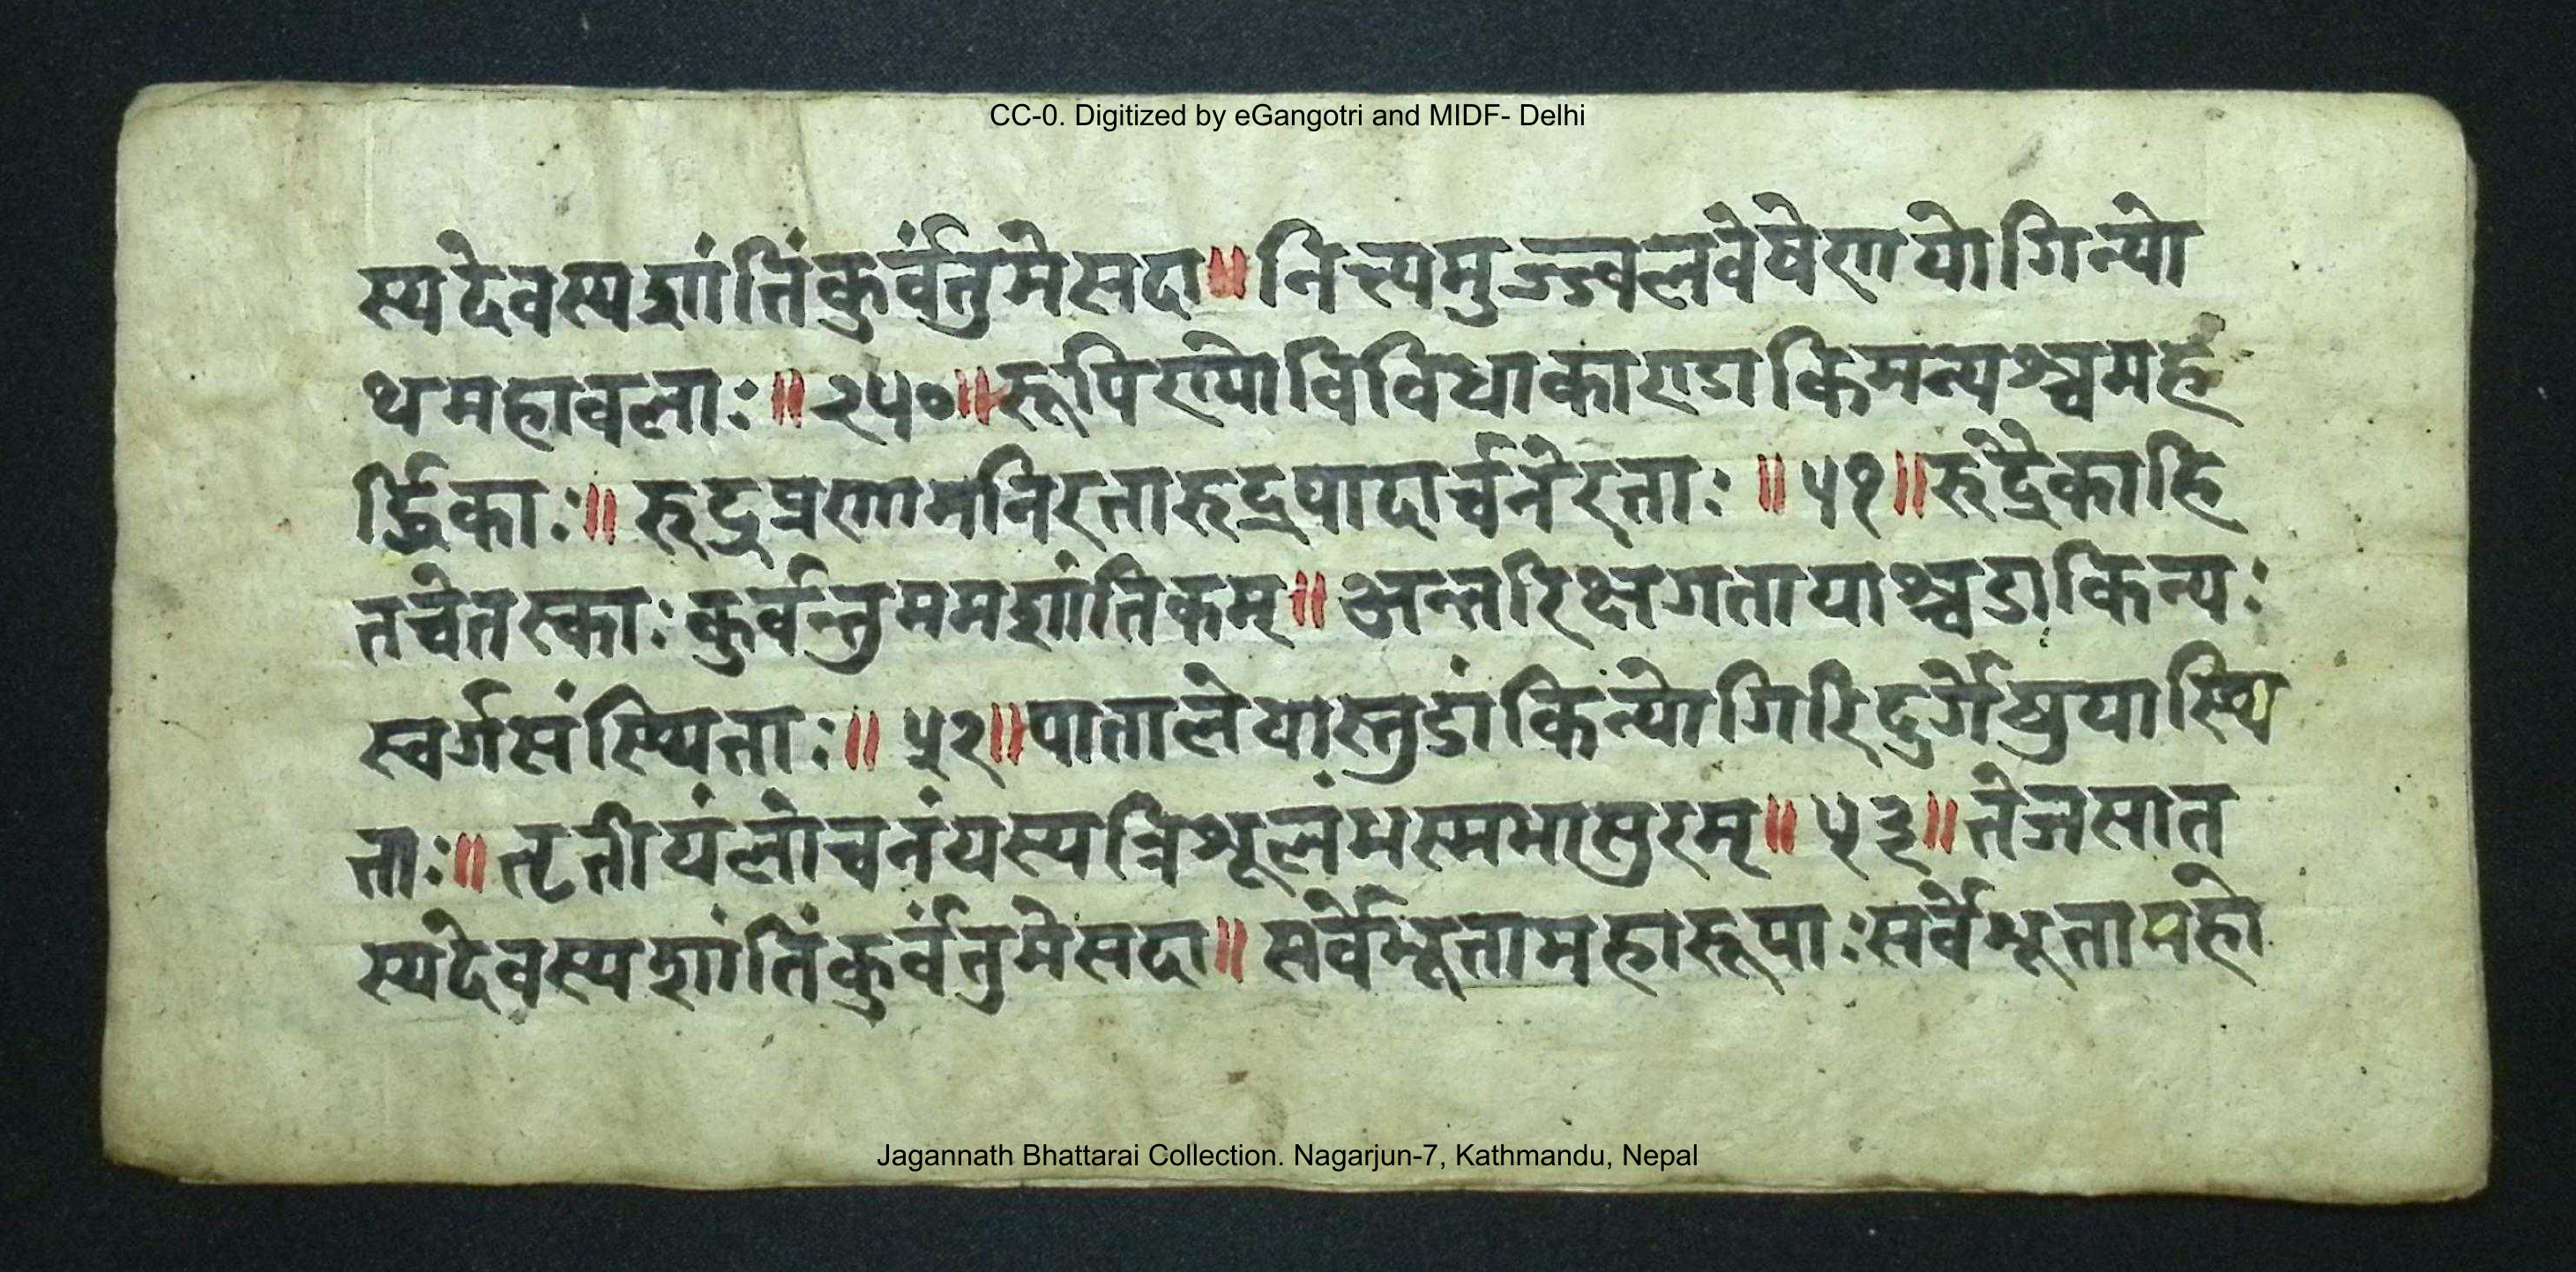 CC-0. Digitized by eGangotri and MIDF- Delhi
स्यदेवस्यशांतिंकुर्वंतुमेसदा॥नित्यमुज्ज्वलवेषेणयोगिन्यो
थमहावलाः॥२५०॥रूपिण्योविविधाकाराडाकिमन्यश्चमह
र्द्धिकाः॥रुद्रप्रणामनिरतारुद्रपादार्चनेरताः॥५१॥रुद्रैकाहि
तचेतस्काःकुर्वन्तुममशांतिकम्॥अन्तरिक्षगतायाश्चडाकिन्यः
स्वर्गसंस्थिताः॥५२॥पातालेयास्तुडांकिन्योगिरिदुर्गेषुयास्थि
ताः॥तृतीयंलोचनंयस्यत्रिशूलंभस्मभासुरम्॥५३॥तेजसात
स्यदेवस्यशांतिंकुर्वंतुमेसदा॥सर्वेभूतामहारूपाःसर्वेभूतामहो
Jagannath Bhattarai Collection. Nagarjun-7, Kathmandu, Nepal